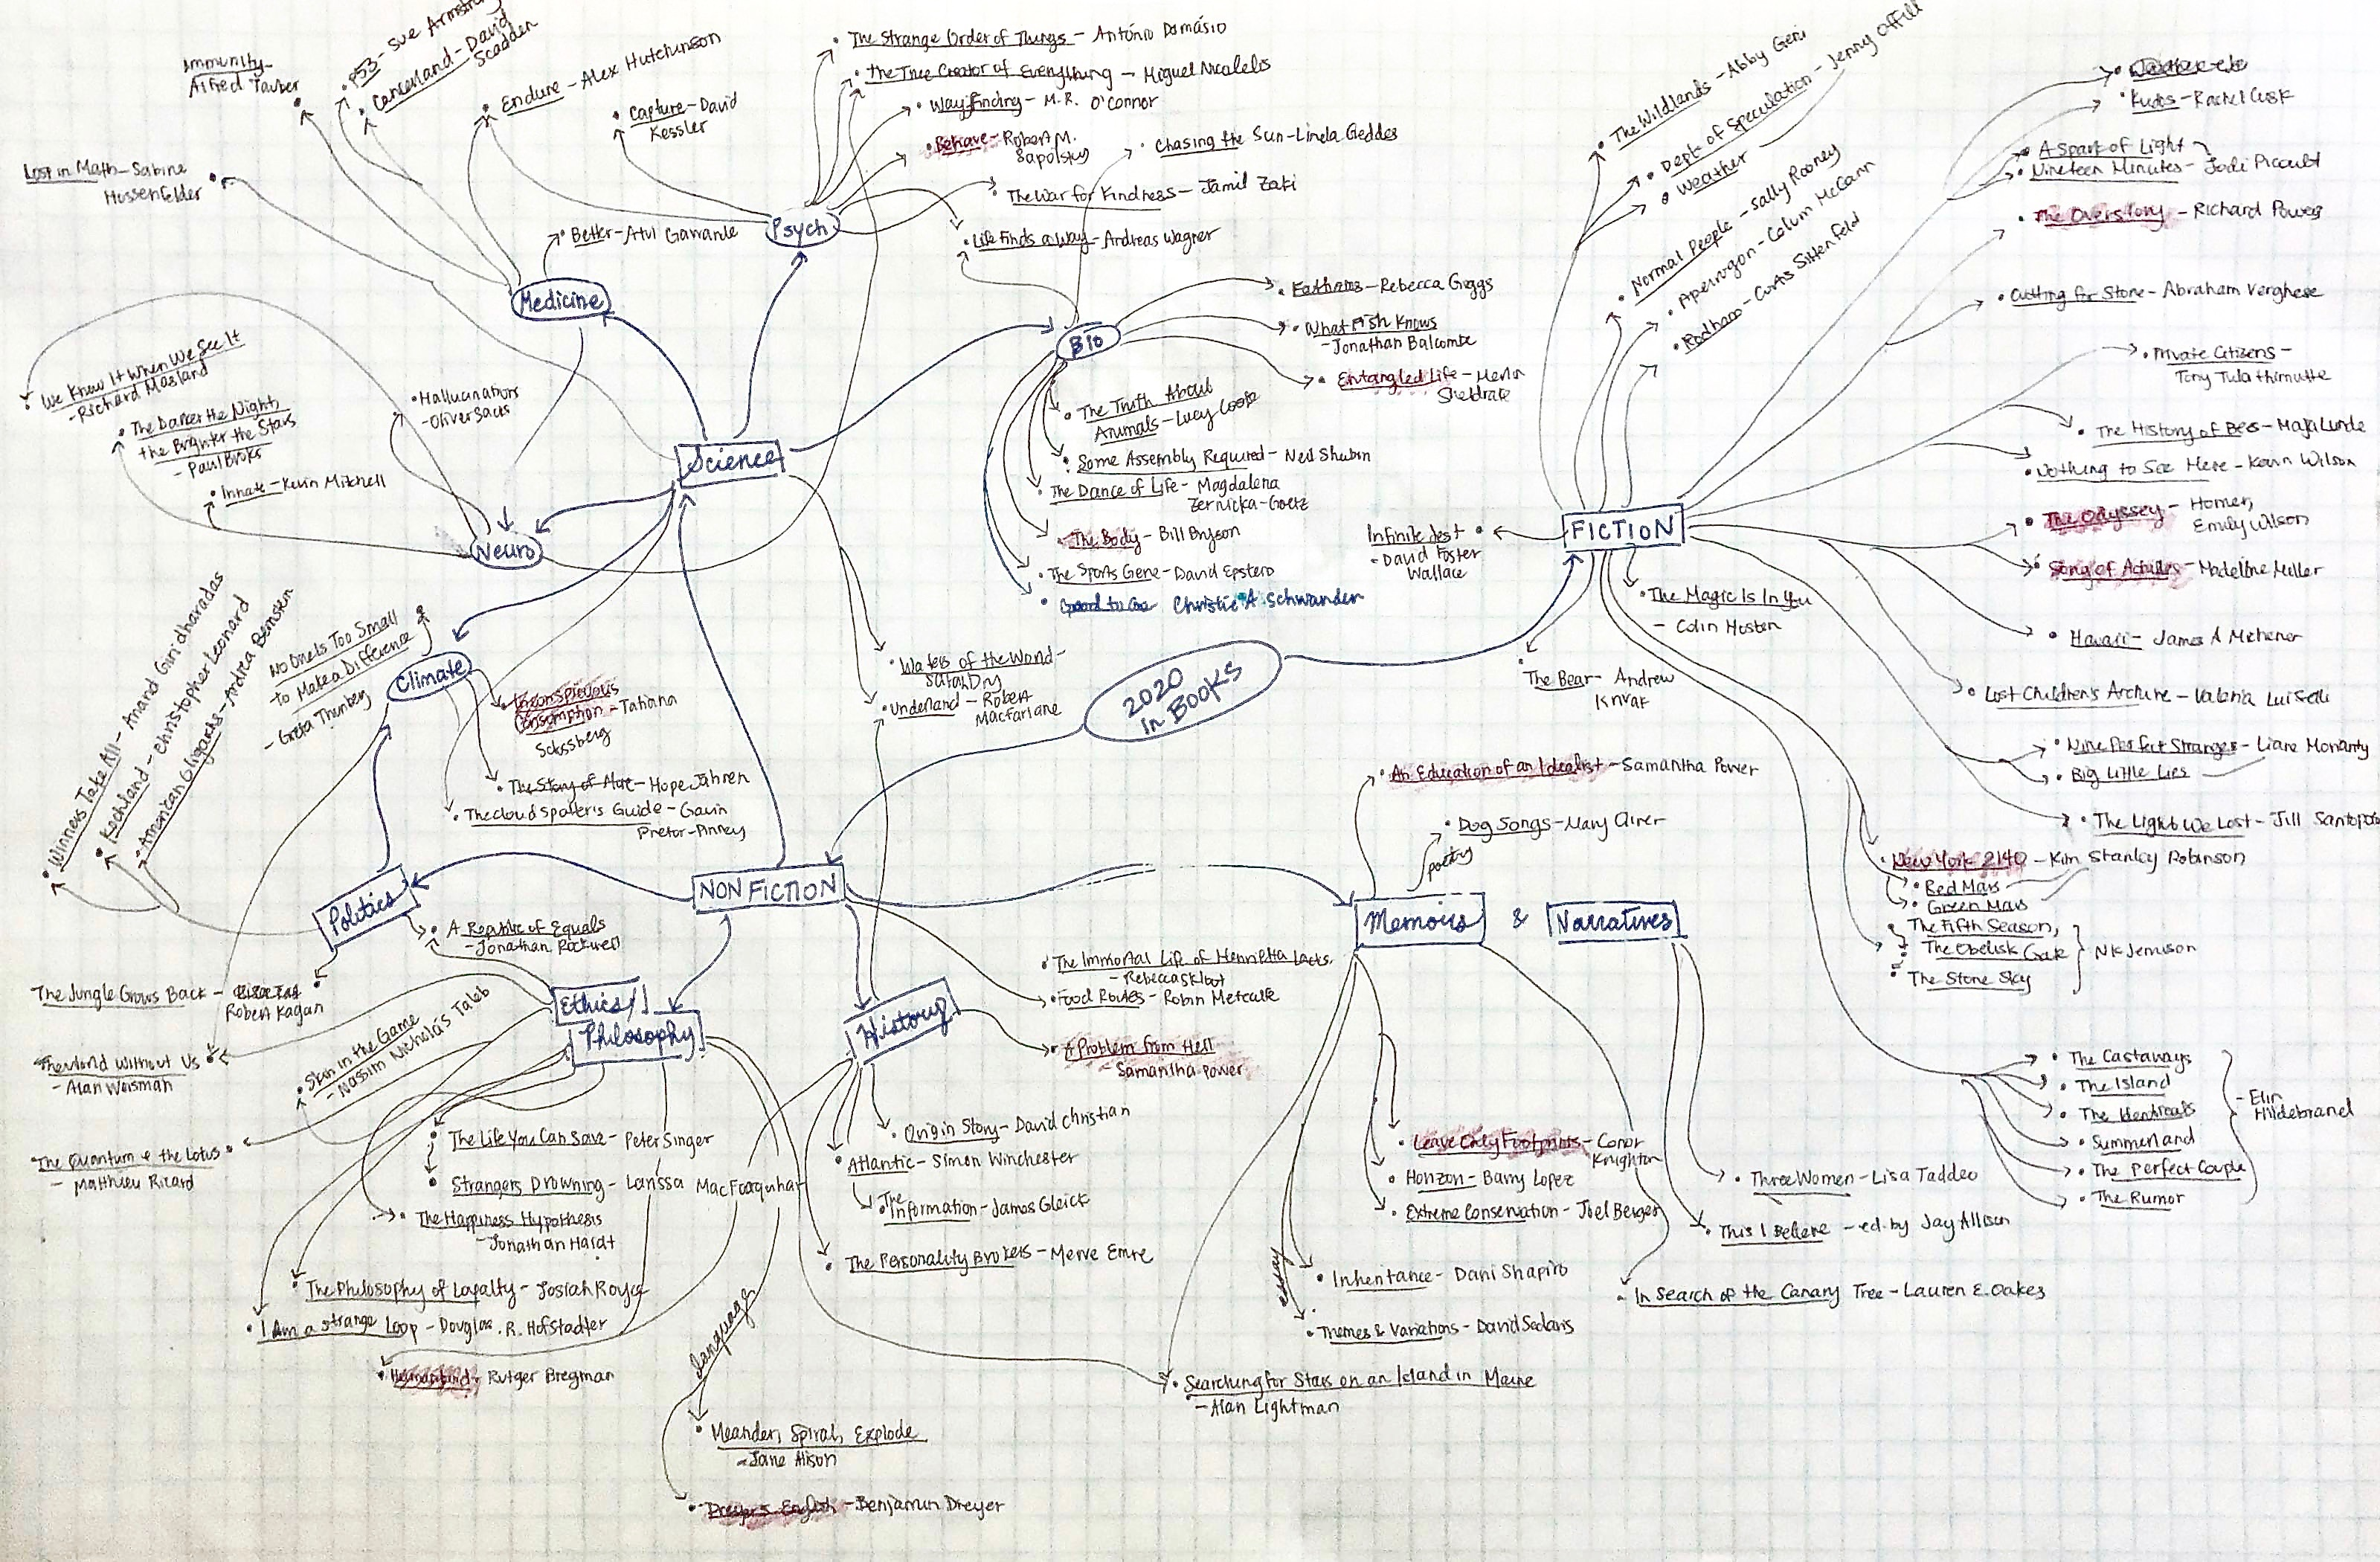 Immunity-
Alfred Tauber
P53 - Sue Armstrong
Cancerland - David
Scadden
Endure - Alex Hutchinson
Capture - David
Kessler
Lost in Math - Sabine
Hossenfelder
Better - Atul Gawande
Medicine
Psych
The Strange Order of Things - António Damásio
The True Creator of Everything - Miguel Nicolelis
Wayfinding - M.R. O'Connor
Behave - Robert M.
Sapolsky
Chasing the Sun - Linda Geddes
The War for Kindness - Jamil Zaki
Life Finds a Way - Andreas Wagner
Bio
Fathoms - Rebecca Giggs
What Fish Knows
- Jonathan Balcombe
Entangled Life - Merlin
Sheldrake
The Truth About
Animals - Lucy Cooke
Some Assembly Required - Neil Shubin
The Dance of Life - Magdalena
Zernicka-Goetz
The Body - Bill Bryson
The Sports Gene - David Epstein
Good to Go Christie A. Schwanden
We Know It When We See It
- Richard Masland
The Darker the Night,
the Brighter the Stars
- Paul Broks
Hallucinations
- Oliver Sacks
Innate - Kevin Mitchell
Science
Neuro
Winners Take All - Anand Giridharadas
Kochland - Christopher Leonard
American Oligarchs - Andrea Bernstein
No One Is Too Small
to Make a Difference
- Greta Thunberg
Climate
Inconspicuous
Consumption - Tatiana
Schlossberg
The Story of More - Hope Jahren
The Cloud Spotter's Guide - Gavin
Pretor-Pinney
Waters of the World -
Sarah Dry
Underland - Robert
Macfarlane
2020
in BOOKS
NON FICTION
Politics
A Republic of Equals
- Jonathan Rockwell
The Jungle Grows Back -
Robert Kagan
The World Without Us
- Alan Weisman
Skin in the Game
- Nassim Nicholas Taleb
The Quantum & the Lotus
- Matthieu Ricard
Ethics/
Philosophy
The Life You Can Save - Peter Singer
Strangers Drowning - Larissa MacFarquhar
The Happiness Hypothesis
- Jonathan Haidt
The Philosophy of Loyalty - Josiah Royce
I Am a strange Loop - Douglas R. Hofstadter
Humankind - Rutger Bregman
language
Meander, Spiral, Explode
- Jane Alison
Dreyer's English - Benjamin Dreyer
History
The Immortal Life of Henrietta Lacks
- Rebecca Skloot
Food Routes - Robin Metcalfe
A Problem from Hell
- Samantha Power
Origin Story - David Christian
Atlantic - Simon Winchester
The
Information - James Gleick
The Personality Brokers - Merve Emre
An Education of an Idealist - Samantha Power
Dog Songs - Mary Oliver
poetry
Memoirs & Narratives
Leave Only Footprints - Conor
Knighton
Horizon - Barry Lopez
Extreme Conservation - Joel Berger
essay
Inheritance - Dani Shapiro
Themes & Variations - David Sedaris
Searching for Stars on an Island in Maine
- Alan Lightman
Three Women - Lisa Taddeo
This I Believe - ed. by Jay Allison
In Search of the Canary Tree - Lauren E. Oakes
FICTION
The Wildlands - Abby Geni
Dept. of Speculation - Jenny Offill
Weather
Normal People - Sally Rooney
Apeirogon - Colum McCann
Rodham - Curtis Sittenfeld
Infinite Jest
- David Foster
Wallace
The Magic Is In You
- Colin Hosten
The Bear - Andrew
Krivak
Kudos - Rachel Cusk
A Spark of Light
Nineteen Minutes - Jodi Picoult
The Overstory - Richard Powers
Cutting for Stone - Abraham Verghese
Private Citizens -
Tony Tulathimutte
The History of Bees - Maja Lunde
Nothing to See Here - Kevin Wilson
The Odyssey - Homer,
Emily Wilson
Song of Achilles - Madeline Miller
Hawaii - James A Michener
Lost Children's Archive - Valeria Luiselli
Nine Perfect Strangers - Liane Moriarty
Big Little Lies
The Light We Lost - Jill Santopolo
New York 2140 - Kim Stanley Robinson
Red Mars
Green Mars
The Fifth Season,
The Obelisk Gate
The Stone Sky
NK Jemison
The Castaways
The Island
The Identicals
Summerland
The Perfect Couple
The Rumor
- Elin
Hildebrand